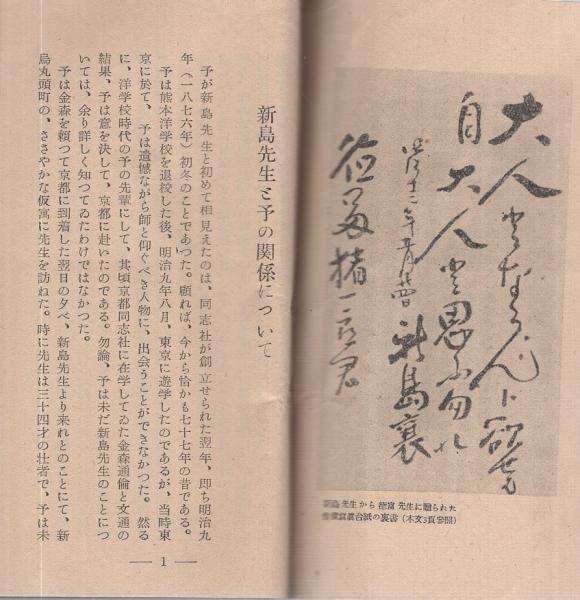 大人とならんト欲せは
自大人と思ふ勿れ
新島襄
徳富猪一郎君
新島先生から 徳富先生に贈られた
台紙の裏書(本文3頁参照)
新島先生と予の関係について
予が新島先生と初めて相見えたのは、同志社が創立せられた翌年、即ち明治九
年(一八七六年)初冬のことであつた。顧れば、今から恰かも七十七年の昔である。
予は熊本洋学校を退校した後、明治九年八月、東京に遊学したのであるが、当時東
京に於て、予は遺憾ながら師と仰ぐべき人物に、出会うことができなかつた。然る
に、洋学校時代の予の先輩にして、其頃京都同志社に在学してゐた金森通倫と文通の
結果、予は意を決して、京都に赴いたのである。勿論、予は未だ新島先生のことにつ
いては、余り詳しく知つてゐたわけではなかつた。
予は金森を頼つて京都に到着した翌日の夕べ、新島先生より来れとのことにて、新
烏丸頭町の、ささやかな仮寓に先生を訪ねた。時に先生は三十四才の壮者で、予は未
— 1 —